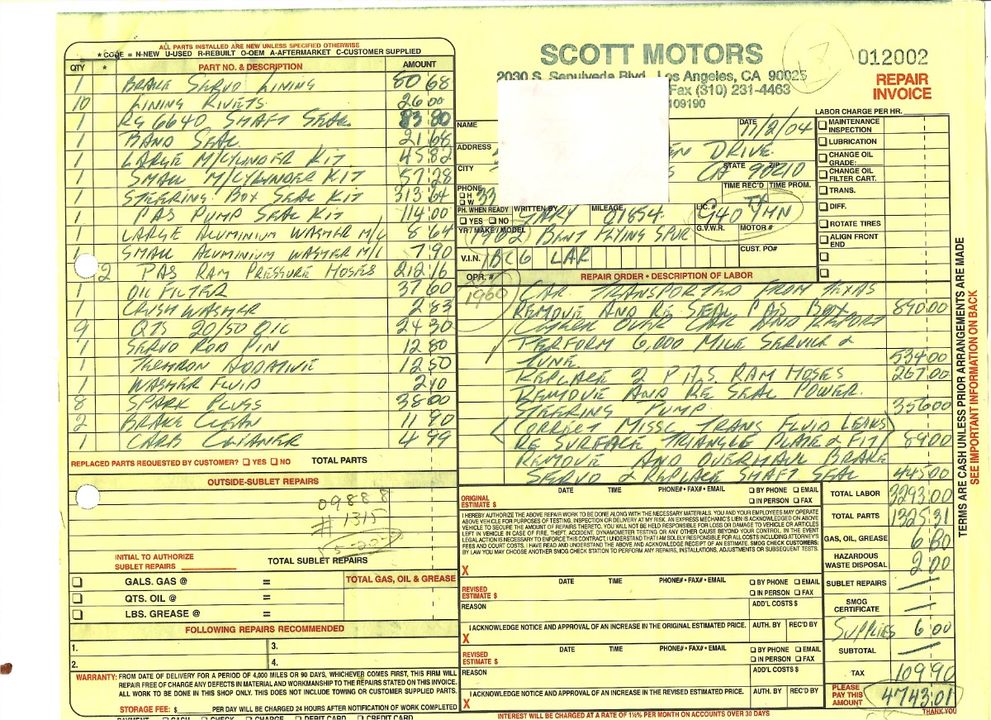 ALL PARTS INSTALLED ARE NEW UNLESS SPECIFIED OTHERWISE
* CODE = N-NEW U-USED R-REBUILT O-OEM A-AFTERMARKET C-CUSTOMER SUPPLIED
QTY * PART NO. & DESCRIPTION AMOUNT
1 BRAKE SERVO LINING 80 68
10 LINING RIVETS 26 00
1 RG 6640 SHAFT SEAL 83 80
1 BAND SEAL 21 68
1 LARGE M/CYLINDER KIT 45 82
1 SMALL M/CYLINDER KIT 57 28
1 STEERING BOX SEAL KIT 313 64
1 PAS PUMP SEAL KIT 114 00
1 LARGE ALUMINIUM WASHER M/C 8 64
1 SMALL ALUMINIUM WASHER M/C 7 90
2 PAS RAM PRESSURE HOSES 212 16
1 OIL FILTER 37 60
1 CRUSH WASHER 2 83
9 QTS 20/50 OIL 24 30
1 SERVO ROD PIN 12 80
1 ADDITIVE 12 50
1 WASHER FLUID 2 10
8 SPARK PLUGS 38 00
2 BRAKE CLEAN 11 90
1 CARB CLEANER 4 99
REPLACED PARTS REQUESTED BY CUSTOMER? YES NO TOTAL PARTS
OUTSIDE-SUBLET REPAIRS
09888
# 1315
INITIAL TO AUTHORIZE
SUBLET REPAIRS TOTAL SUBLET REPAIRS
GALS. GAS @ = TOTAL GAS, OIL & GREASE
QTS. OIL @ =
LBS. GREASE @ =
FOLLOWING REPAIRS RECOMMENDED
1. 3.
2. 4.
WARRANTY: FROM DATE OF DELIVERY FOR A PERIOD OF 4,000 MILES OR 90 DAYS, WHICHEVER COMES FIRST, THIS FIRM WILL
REPAIR FREE OF CHARGE ANY DEFECTS IN MATERIAL AND WORKMANSHIP TO THE REPAIRS STATED ON THIS INVOICE.
ALL WORK TO BE DONE IN THIS SHOP ONLY. THIS DOES NOT INCLUDE TOWING OR CUSTOMER SUPPLIED PARTS.
STORAGE FEE: $ PER DAY WILL BE CHARGED 24 HOURS AFTER NOTIFICATION OF WORK COMPLETED
PAYMENT CASH CHECK CHARGE DEBIT CARD CREDIT CARD
SCOTT MOTORS
2030 S. Sepulveda Blvd. Los Angeles, CA 90025
Fax (310) 231-4463
109190
012002
REPAIR
INVOICE
NAME DATE 11/2/04
ADDRESS DRIVE
CITY STATE CA 90210
PHONE TIME REC'D TIME PROM.
H 33
W
PH. WHEN READY WRITTEN BY MILEAGE LIC. # TX
YES NO GARY 01854 G40 THN
YR / MAKE / MODEL G.V.W.R. MOTOR #
1962 BENT FLYING SPUR
V.I.N. BCG LAR CUST. PO#
LABOR CHARGE PER HR.
MAINTENANCE INSPECTION
LUBRICATION
CHANGE OIL GRADE:
CHANGE OIL FILTER CART.
TRANS.
DIFF.
ROTATE TIRES
ALIGN FRONT END
OPR. # REPAIR ORDER • DESCRIPTION OF LABOR
1960 CAR TRANSPORTED FROM TEXAS
REMOVE AND RE SEAL PAS BOX 890 00
CHECK OVER CAR AND REPORT
PERFORM 6,000 MILE SERVICE &
TUNE 534 00
REPLACE 2 P.A.S. RAM HOSES 267 00
REMOVE AND RE SEAL POWER
STEERING PUMP 356 00
(CORRECT MISSC TRANS FLUID LEAKS)
RE SURFACE TRIANGLE PLATE & FIT 89 00
REMOVE AND OVERHAUL BRAKE
SERVO & REPLACE SHAFT SEAL 445 00
ORIGINAL ESTIMATE $ DATE TIME PHONE# • FAX# • EMAIL BY PHONE EMAIL IN PERSON FAX
I HEREBY AUTHORIZE THE ABOVE REPAIR WORK TO BE DONE ALONG WITH THE NECESSARY MATERIALS. YOU AND YOUR EMPLOYEES MAY OPERATE
ABOVE VEHICLE FOR PURPOSES OF TESTING, INSPECTION OR DELIVERY AT MY RISK. AN EXPRESS MECHANIC'S LIEN IS ACKNOWLEDGED ON ABOVE
VEHICLE TO SECURE THE AMOUNT OF REPAIRS THERETO. YOU WILL NOT BE HELD RESPONSIBLE FOR LOSS OR DAMAGE TO VEHICLE OR ARTICLES
LEFT IN VEHICLE IN CASE OF FIRE, THEFT, ACCIDENT,
X
REVISED ESTIMATE $ DATE TIME PHONE# • FAX# • EMAIL BY PHONE EMAIL IN PERSON FAX
REASON ADD'L COSTS $
I ACKNOWLEDGE NOTICE AND APPROVAL OF AN INCREASE IN THE ORIGINAL ESTIMATED PRICE. AUTH. BY REC'D BY
X
REVISED ESTIMATE $ DATE TIME PHONE# • FAX# • EMAIL BY PHONE EMAIL IN PERSON FAX
REASON ADD'L COSTS $
I ACKNOWLEDGE NOTICE AND APPROVAL OF AN INCREASE IN THE REVISED ESTIMATED PRICE. AUTH. BY REC'D BY
X
INTEREST WILL BE CHARGED AT A RATE OF 1½% PER MONTH ON ACCOUNTS OVER 30 DAYS
TOTAL LABOR 3293 00
TOTAL PARTS 1325 31
GAS, OIL, GREASE 6 80
HAZARDOUS WASTE DISPOSAL 2 00
SUBLET REPAIRS
SMOG CERTIFICATE
SUPPLIES 6 00
SUBTOTAL
TAX 109 90
PLEASE PAY THIS AMOUNT 4743.01
THANK YOU
TERMS ARE CASH UNLESS PRIOR ARRANGEMENTS ARE MADE
SEE IMPORTANT INFORMATION ON BACK